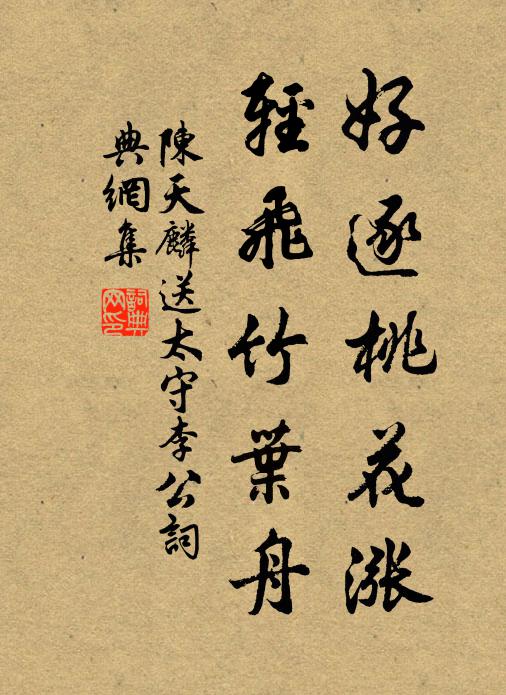 好逐桃花漲
輕飛竹葉舟
陳天麟送太守李公詞
典網集
詞典網印